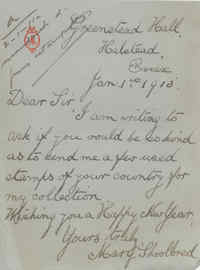 Greenstead Hall,
Halstead,
Essex
Jan 1st 1913.
Dear Sir
I am writing to
ask if you would be so kind
as to send me a few used
stamps of your country for
my collection
Wishing you a Happy New Year
Yours truly
Mary Shoolbred